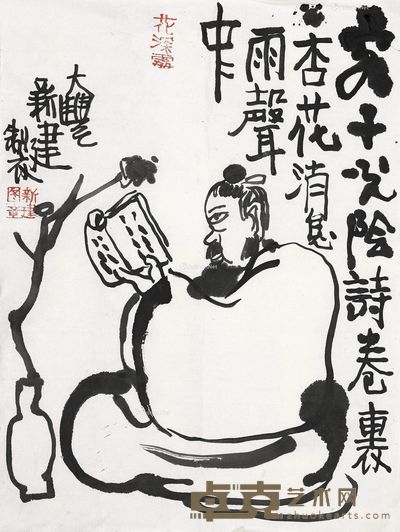 客子光陰詩卷裏
杏花消息
雨聲
中
花深處
大豐
新建
製
新建
图章
卓克艺术网